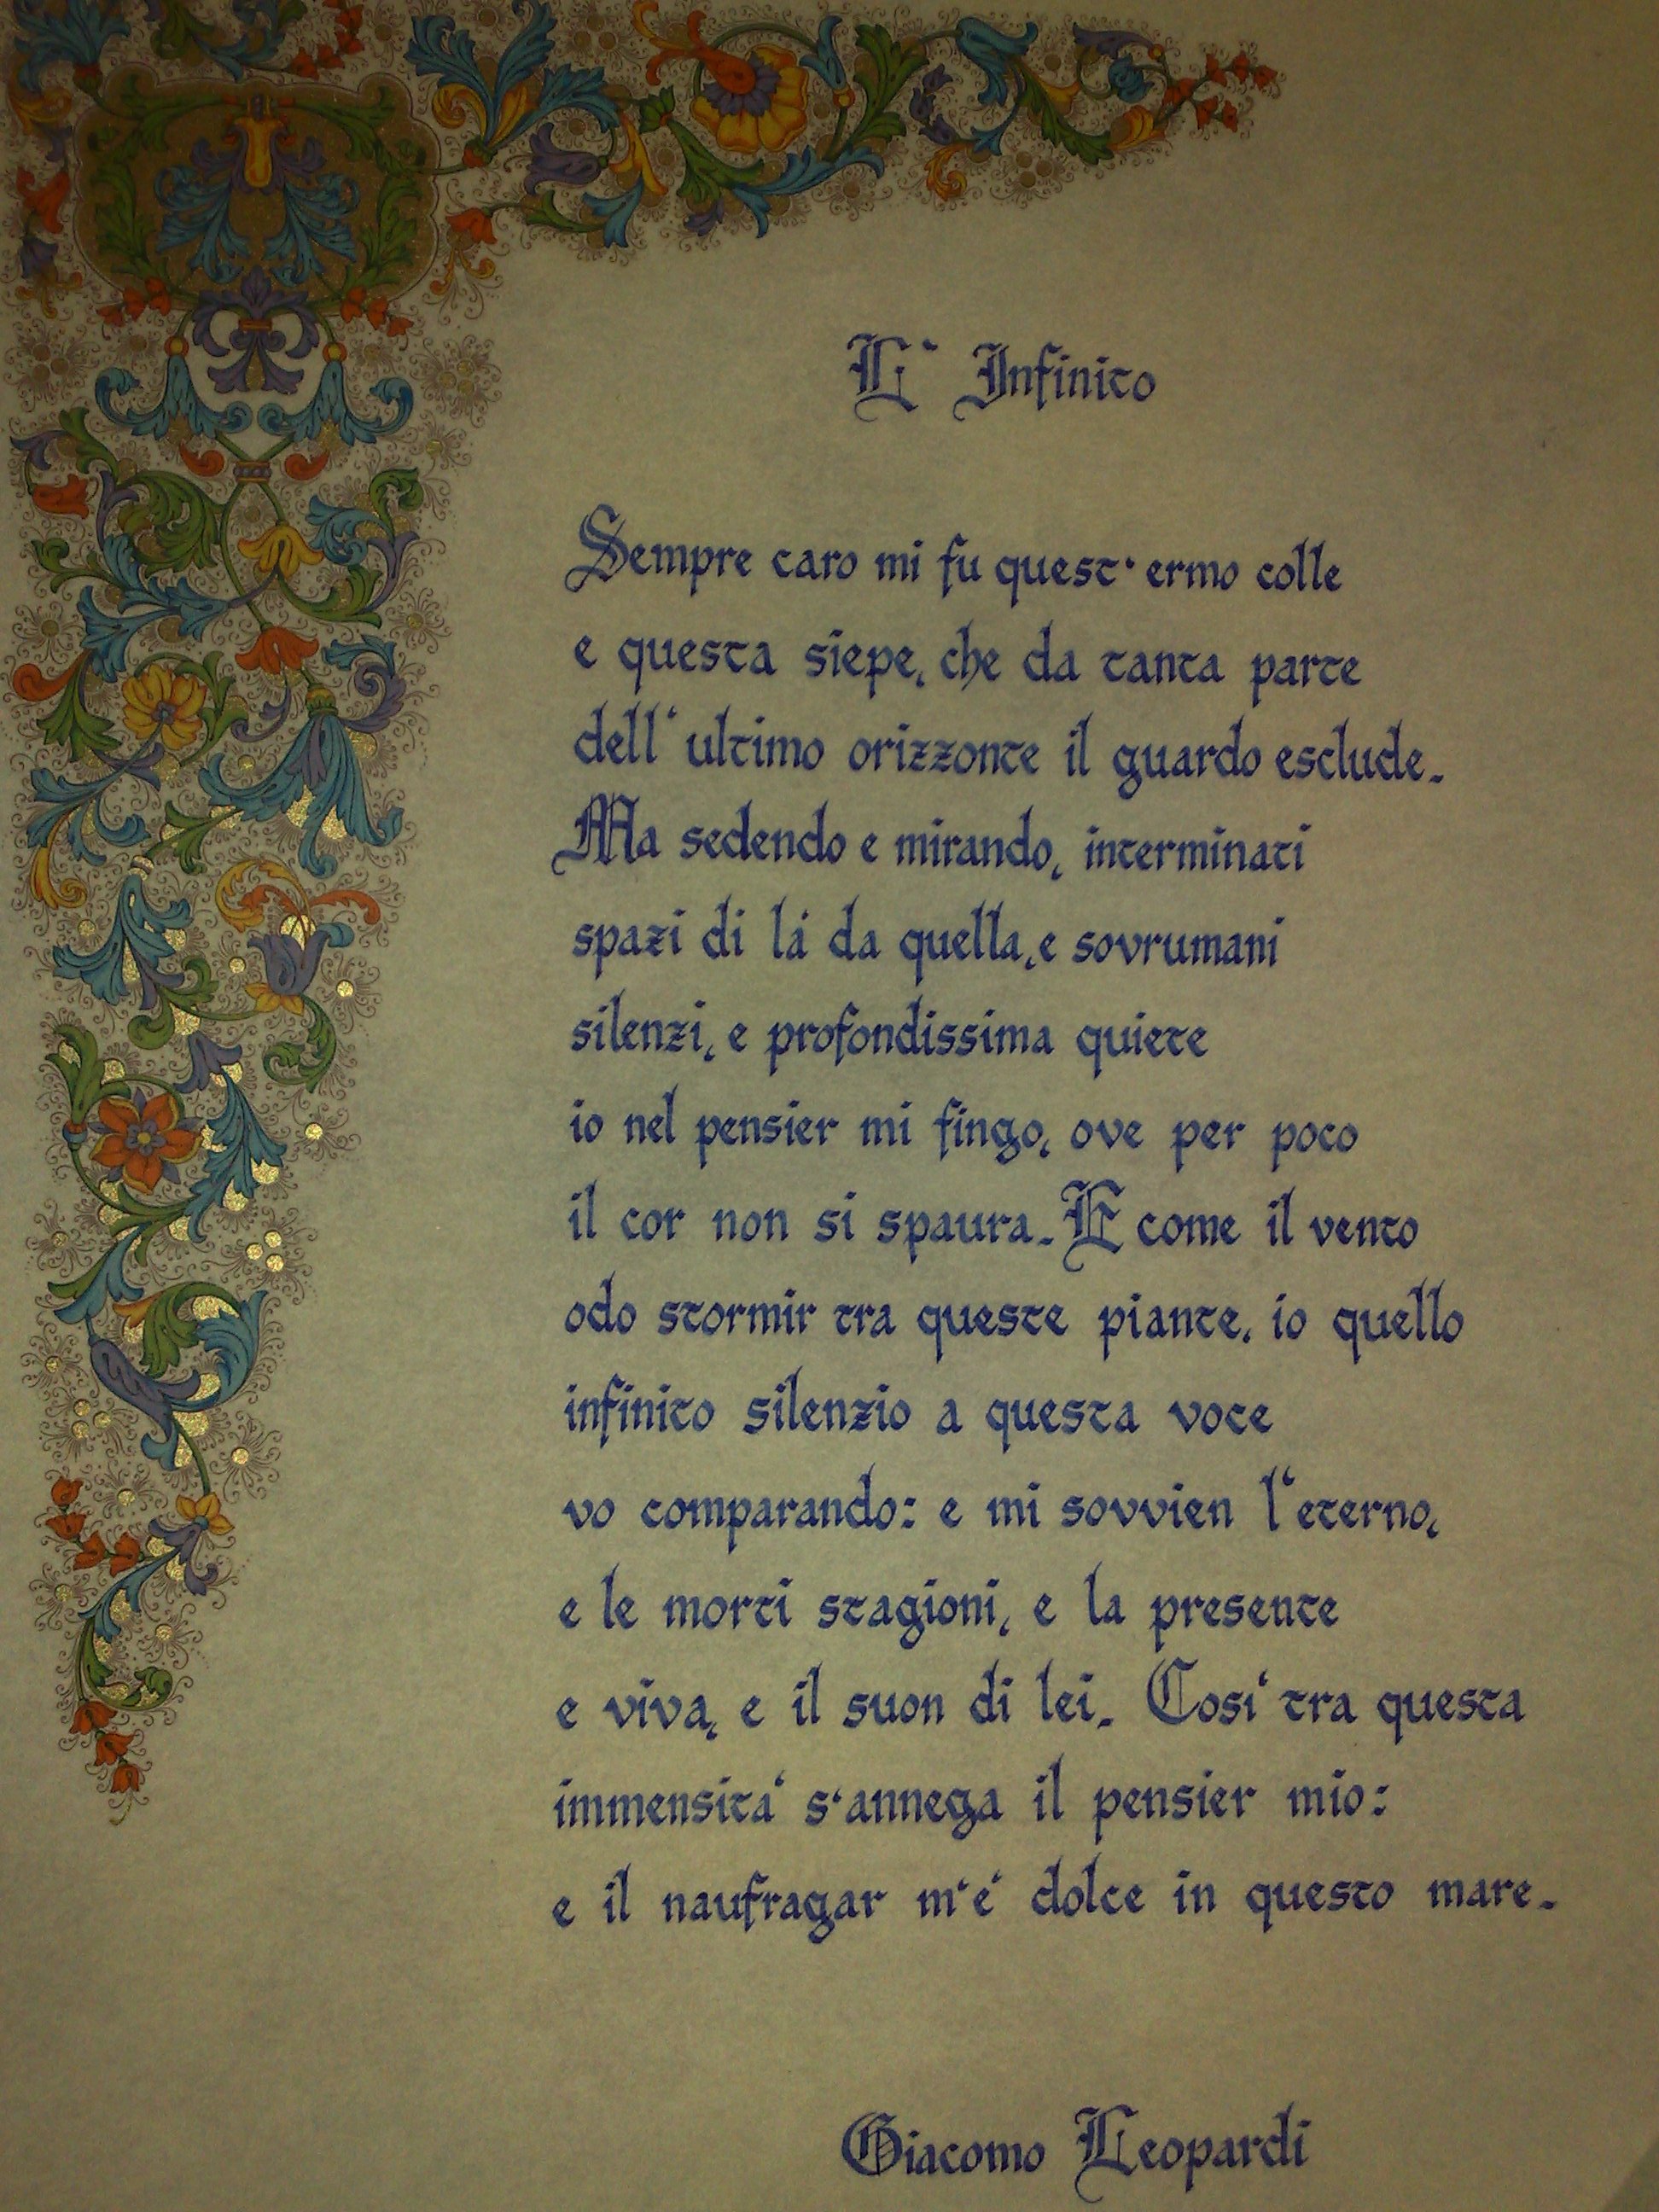 L' Infinito
Sempre caro mi fu quest' ermo colle
e questa siepe, che da tanta parte
dell' ultimo orizzonte il guardo esclude.
Ma sedendo e mirando, interminati
spazi di lá da quella, e sovrumani
silenzi, e profondissima quiete
io nel pensier mi fingo, ove per poco
il cor non si spaura. E come il vento
odo stormir tra queste piante, io quello
infinito silenzio a questa voce
vo comparando: e mi sovvien l'eterno,
e le morti stagioni, e la presente
e viva, e il suon di lei. Cosi' tra questa
immensita' s'annega il pensier mio:
e il naufragar m'e' dolce in questo mare.
Giacomo Leopardi